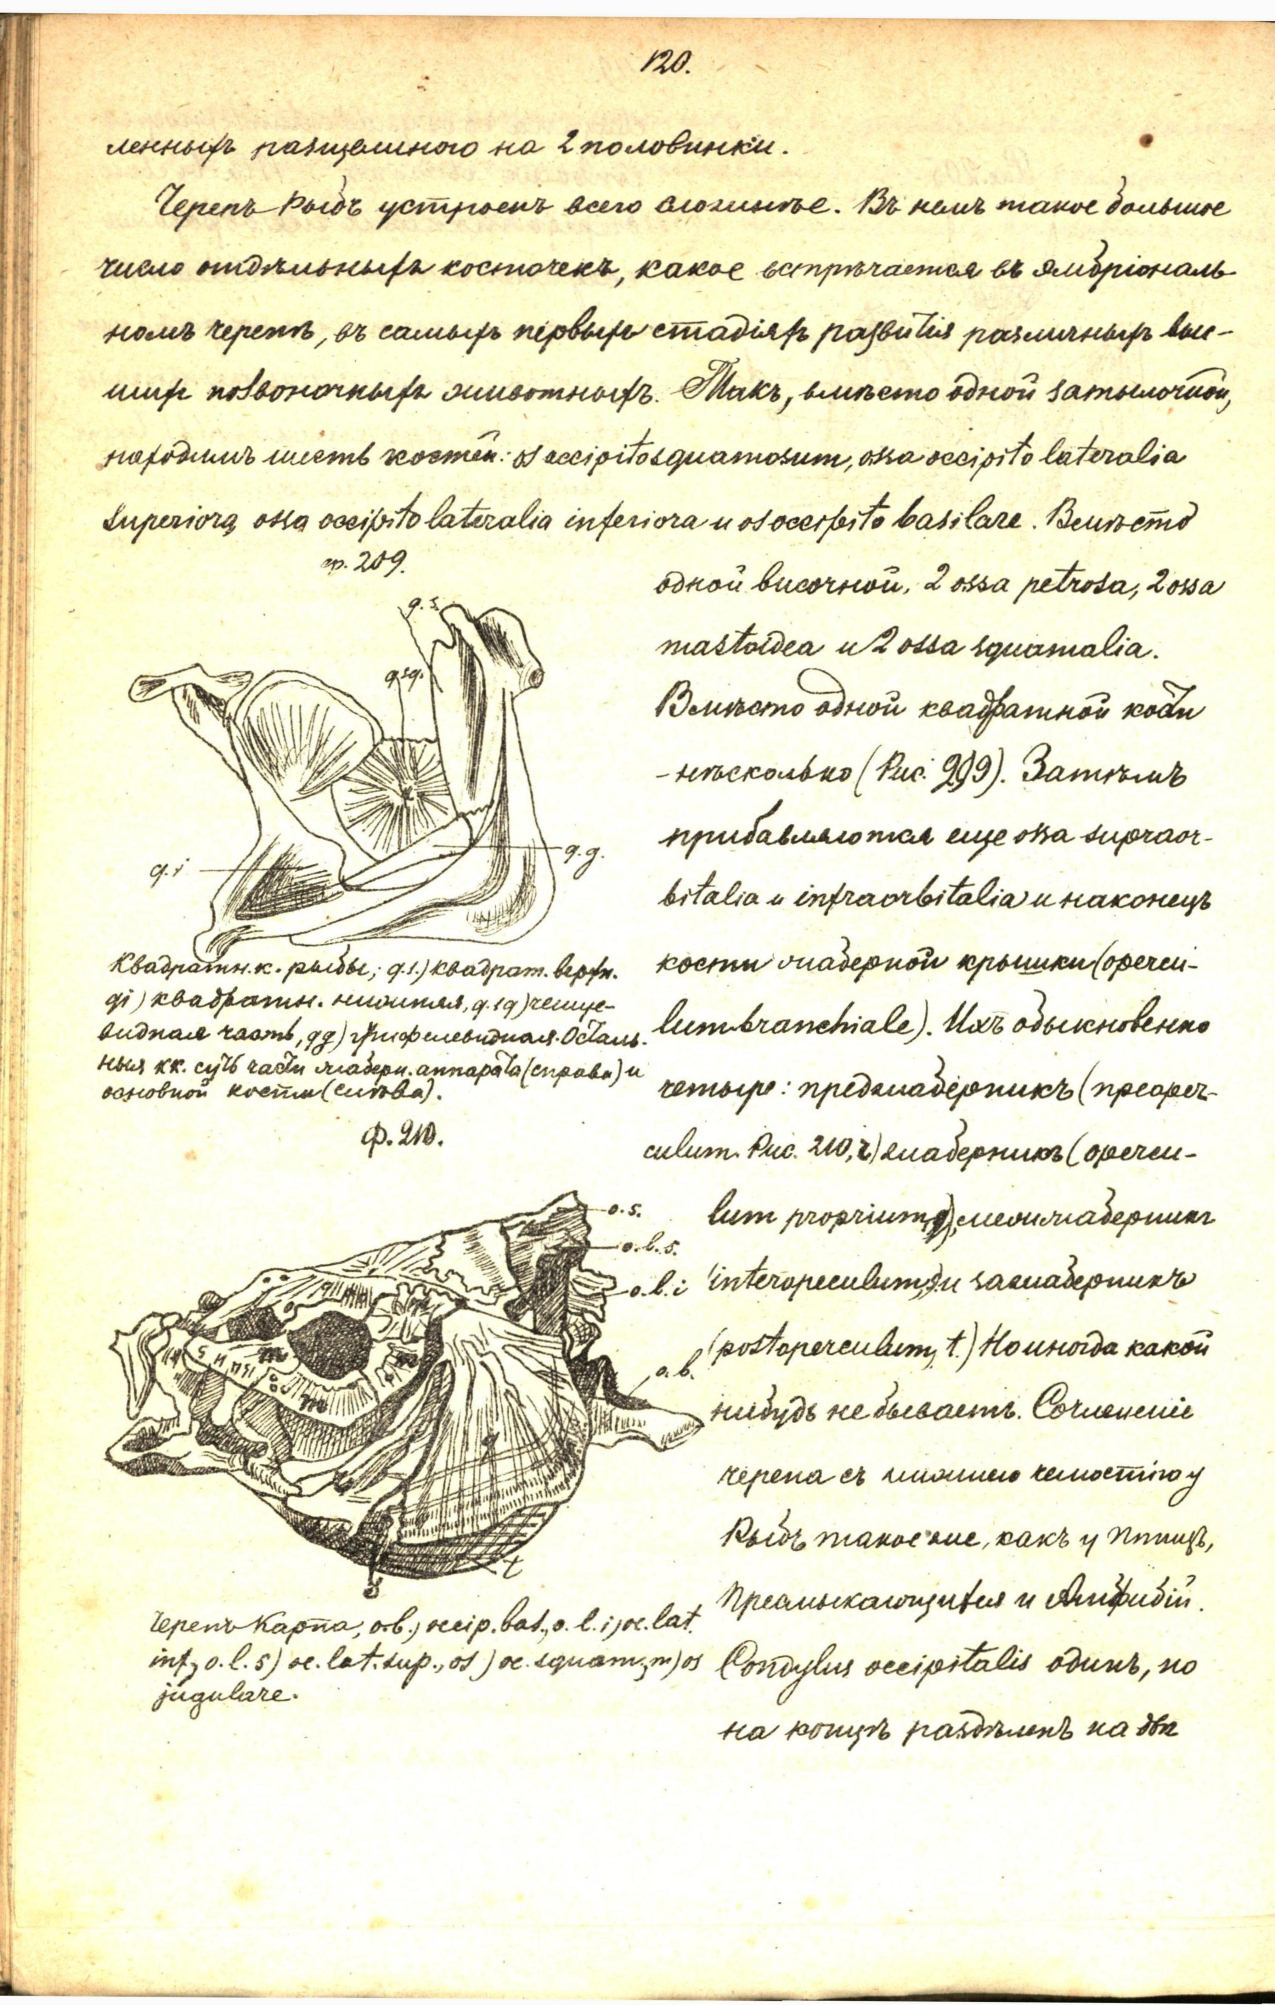 120.
ленныхъ разщелиною на 2 половинки.
Черепъ Рыбъ устроенъ всего сложнѣе. Въ немъ такое большое
число отдѣльныхъ косточекъ, какое встрѣчается въ эмбріональ-
номъ черепѣ, въ самыхъ первыхъ стадіяхъ развитія различныхъ выс-
шихъ позвоночныхъ животныхъ. Такъ, вмѣсто одной затылочной,
находимъ шесть костей: os occipito squamosum, ossa occipito lateralia
superiora, ossa occipito lateralia inferiora и os occipito basilare. Вмѣсто
ф. 209.
одной височной, 2 ossa petrosa, 2 ossa
mastoidea и 2 ossa squamalia.
Вмѣсто одной квадратной кости
- нѣсколько (Рис. 209). Затѣмъ
прибавляются еще ossa supraor-
bitalia и infraorbitalia и наконецъ
кости жаберной крышки (opercu-
lum branchiale). Ихъ обыкновенно
четыре: преджаберникъ (preoper-
culum. Рис. 210, r) жаберникъ (opercu-
lum proprium,), межжаберникъ
(interoperculum,) и зажаберникъ
(postoperculum, t.) Но иногда какой
нибудь не бываетъ. Сочлененіе
черепа съ нижнею челюстью у
Рыбъ такое же, какъ у Птицъ,
Пресмыкающихся и Амфибій.
Condylus occipitalis одинъ, но
на концѣ раздѣленъ на двѣ
q. s.
q. sq.
q. i
q. g.
Квадратн. к. рыбы; q. s.) квадрат. верхн.
qi) квадратн. нижняя, q. sq) чешуе-
видная часть, qg) грифелевидная. Осталь-
ныя кк. суть части жаберн. аппарата (справа) и
основной кости (слѣва).
Ф. 210.
o. s.
o. l. s.
o. l. i
o. b.
m
m
m
t
s
Черепъ Карпа, o. b.) occip. bas., o. l. i) oc. lat.
inf., o. l. s) oc. lat. sup., os) oc. squam., m) os
jugulare.